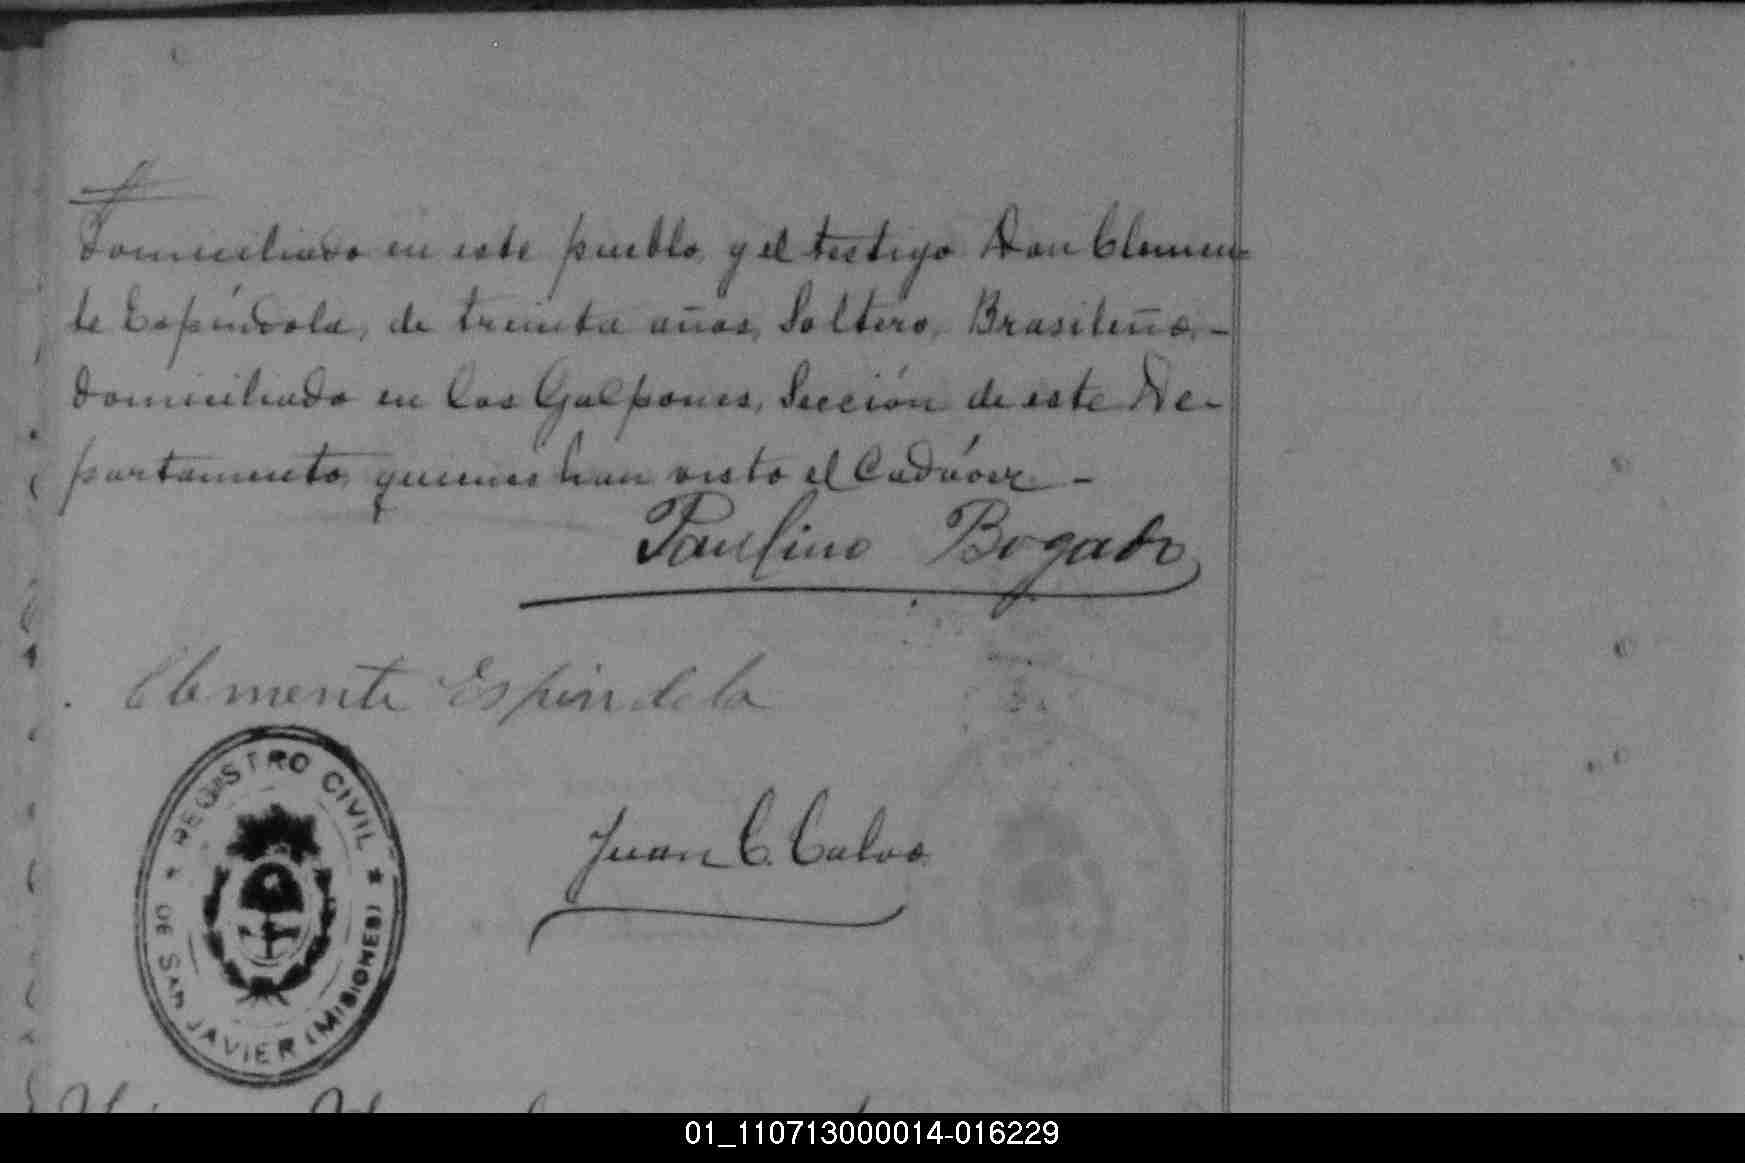 domiciliado en este pueblo, y el testigo Don Clemen-
te Espíndola, de treinta años, Soltero, Brasileño,-
domiciliado en los Galpones, Sección de este De-
partamento, quienes han visto el Cadáver.-
Paulino Bogado
Clemente Espindola
REGISTRO CIVIL
DE SAN JAVIER (MISIONES)
Juan C. Calvo
01_110713000014-016229